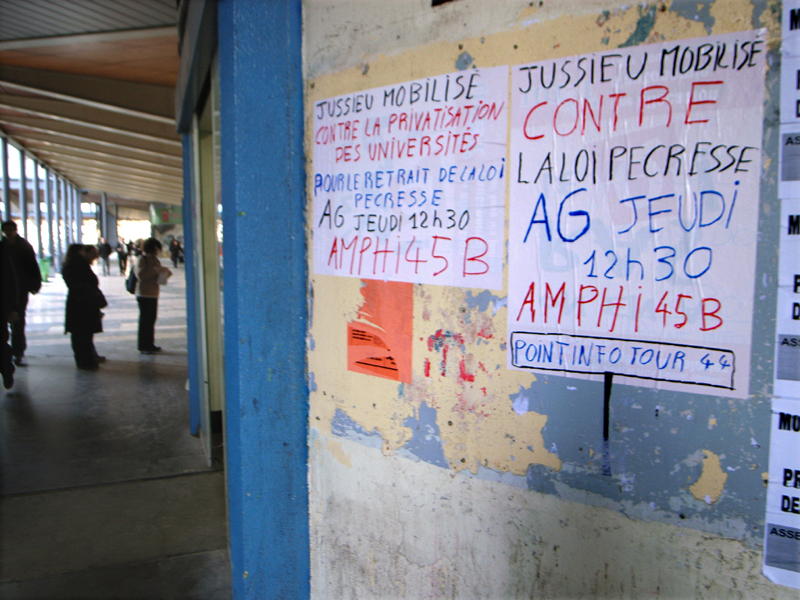 JUSSIEU MOBILISÉ
CONTRE LA PRIVATISATION
DES UNIVERSITÉS
POUR LE RETRAIT DE LA LOI
PECRESSE
AG JEUDI 12h30
AMPHI 45B
JUSSIEU MOBILISE
CONTRE
LA LOI PECRESSE
AG JEUDI
12h30
AMPHI 45B
POINT INFO TOUR 44
MO
PR
DE
ASSE